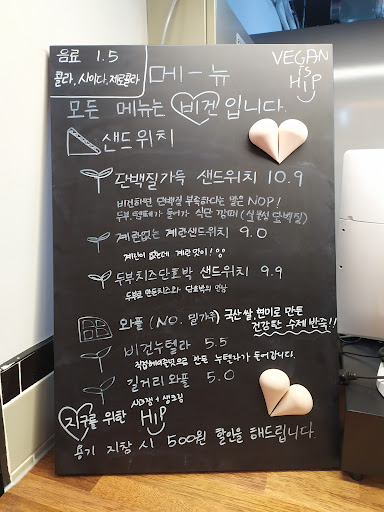 음료 1.5
콜라, 사이다, 제로콜라
VEGAN
is
HIP
메-뉴
모든 메뉴는 비건입니다.
샌드위치
단백질가득 샌드위치 10.9
비건하면 단백질 부족하다는 말은 NOP!
두부, 템페가 들어가 식단 강추! (식물성 단백질)
계란없는 계란샌드위치 9.0
계란이 없는데 계란맛이!
두부치즈단호박 샌드위치 9.9
두부로 만든치즈와 단호박의 만남
와플 (NO. 밀가루) 국산 쌀, 현미로 만든
건강한 수제 반죽!!
비건누텔라 5.5
직접 만든 누텔라가 들어갑니다.
길거리와플 5.0
사과잼 + 생크림
지구를 위한 HIP
용기 지참 시 500원 할인을 해드립니다.